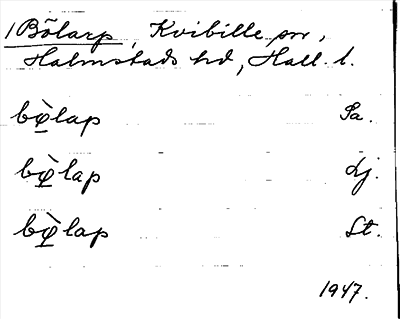 1 Bölarp, Kvibille sn,
Halmstads hd, Hall. l.
bφ̀lap Sa.
bφ̀lap Lj.
bφ̀lap St.
1947.